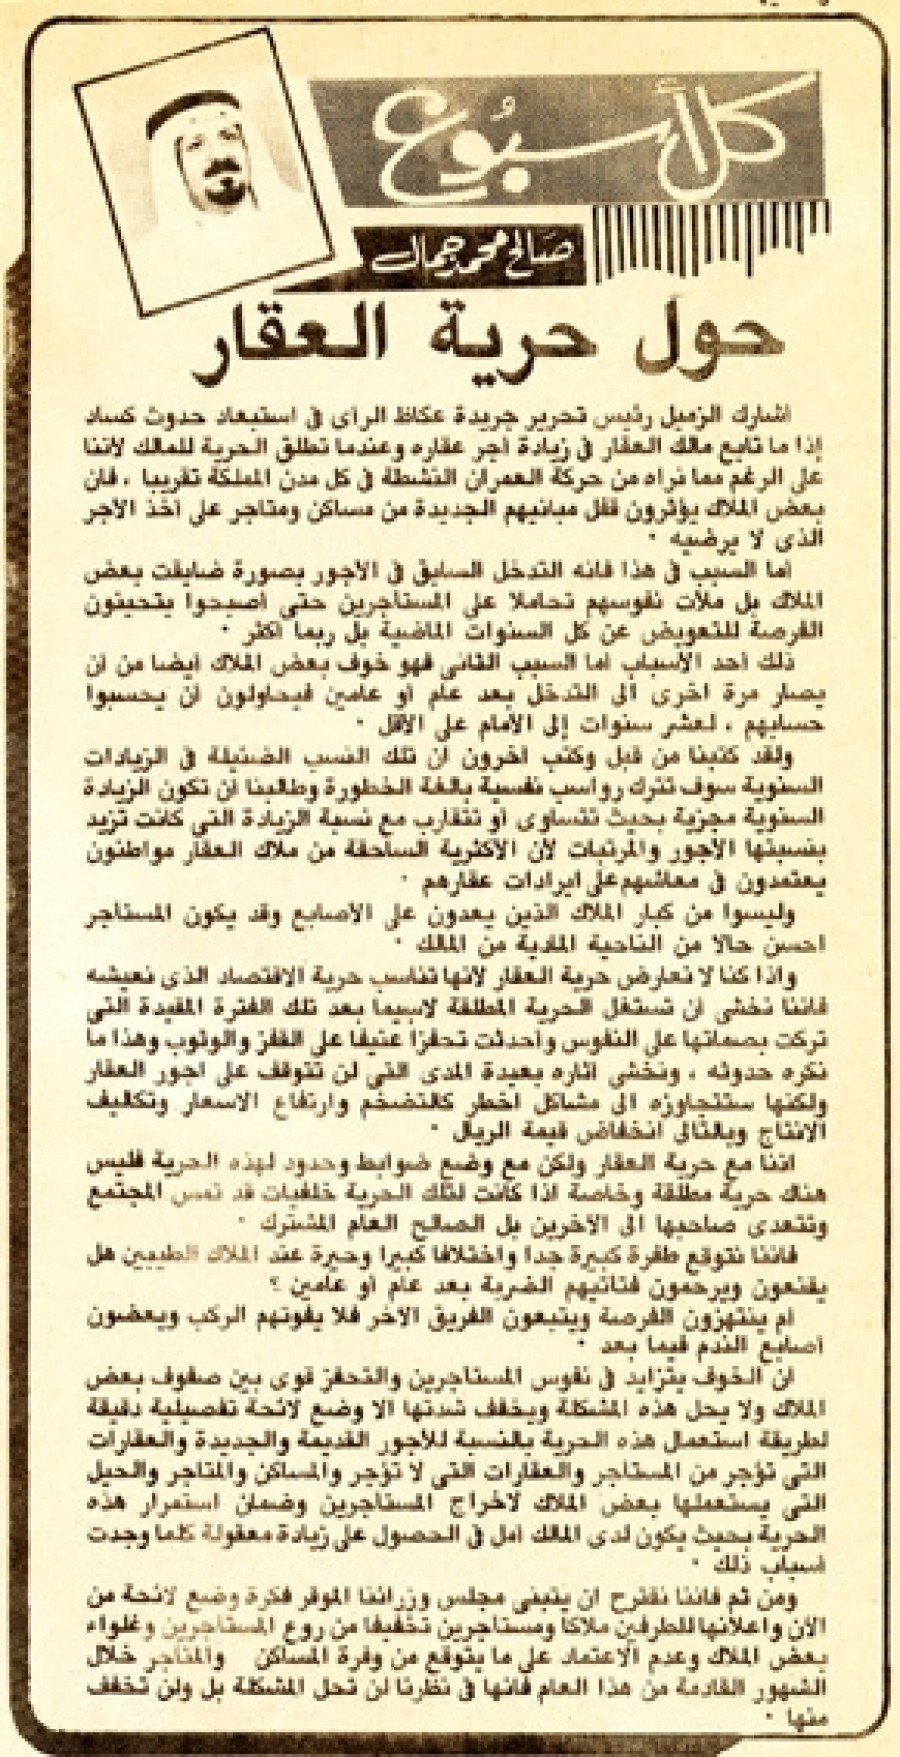 كل أسبوع
صالح محمد جمال
حول حرية العقار
اشارك الزميل رئيس تحرير جريدة عكاظ الرأى فى استبعاد حدوث كساد
إذا ما تابع مالك العقار فى زيادة اجر عقاره وعندما تطلق الحرية للمالك لأننا
على الرغم مما نراه من حركة العمران النشطة فى كل مدن المملكة تقريبا ، فان
بعض الملاك يؤثرون قفل مبانيهم الجديدة من مساكن ومتاجر على أخذ الأجر
الذى لا يرضيه ٠
اما السبب فى هذا فانه التدخل السابق فى الأجور بصورة ضايقت بعض
الملاك بل ملأت نفوسهم تحاملا على المستأجرين حتى أصبحوا يتحينون
الفرصة للتعويض عن كل السنوات الماضية بل ربما أكثر ٠
ذلك أحد الأسباب اما السبب الثانى فهو خوف بعض الملاك أيضا من أن
يصار مرة اخرى الى التدخل بعد عام أو عامين فيحاولون أن يحسبوا
حسابهم ، لعشر سنوات إلى الأمام على الأقل ٠
ولقد كتبنا من قبل وكتب آخرون ان تلك النسب الضئيلة فى الزيادات
السنوية سوف تترك رواسب نفسية بالغة الخطورة وطالبنا ان تكون الزيادة
السنوية مجزية بحيث تتساوى أو تتقارب مع نسبة الزيادة التى كانت تزيد
بنسبتها الأجور والمرتبات لأن الأكثرية الساحقة من ملاك العقار مواطنون
يعتمدون فى معاشهم على ايرادات عقارهم ٠
وليسوا من كبار الملاك الذين يعدون على الأصابع وقد يكون المستأجر
احسن حالا من الناحية المادية من المالك ٠
واذا كنا لا نعارض حرية العقار لأنها تناسب حرية الاقتصاد الذى نعيشه
فاننا نخشى ان تستغل الحرية المطلقة لاسيما بعد تلك الفترة المقيدة التى
تركت بصماتها على النفوس وأحدثت تحفزا عنيفا على القفز والوثوب وهذا ما
نكره حدوثه ، ونخشى اثاره بعيدة المدى التى لن تتوقف على اجور العقار
ولكنها ستتجاوزه الى مشاكل اخطر كالتضخم وارتفاع الاسعار وتكاليف
الانتاج وبالتالى انخفاض قيمة الريال ٠
اننا مع حرية العقار ولكن مع وضع ضوابط وحدود لهذه الحرية فليس
هناك حرية مطلقة وخاصة اذا كانت لتلك الحرية خلفيات قد تمس المجتمع
وتتعدى صاحبها الى الآخرين بل الصالح العام المشترك ٠
فاننا نتوقع طفرة كبيرة جدا واختلافا كبيرا وحيرة عند الملاك الطيبين هل
يقنعون ويرحمون فتأتيهم الضربة بعد عام أو عامين ؟
ام ينتهزون الفرصة ويتبعون الفريق الآخر فلا يفوتهم الركب ويعضون
أصابع الندم فيما بعد ٠
ان الخوف يتزايد فى نفوس المستأجرين والتحفز قوى بين صفوف بعض
الملاك ولا يحل هذه المشكلة ويخفف شدتها الا وضع لائحة تفصيلية دقيقة
لطريقة استعمال هذه الحرية بالنسبة للأجور القديمة والجديدة والعقارات
التى تؤجر من المستأجر والعقارات التى لا تؤجر والمساكن والمتاجر والحيل
التى يستعملها بعض الملاك لاخراج المستأجرين وضمان استمرار هذه
الحرية بحيث يكون لدى المالك امل فى الحصول على زيادة معقولة كلما وجدت
أسباب ذلك ٠
ومن ثم فاننا نقترح ان يتبنى مجلس وزرائنا الموقر فكرة وضع لائحة من
الآن واعلانها للطرفين ملاكا ومستأجرين تخفيفا من روع المستأجرين وغلواء
بعض الملاك وعدم الاعتماد على ما يتوقع من وفرة المساكن والمتاجر خلال
الشهور القادمة من هذا العام فانها فى نظرنا لن تحل المشكلة بل ولن تخفف
منها ٠